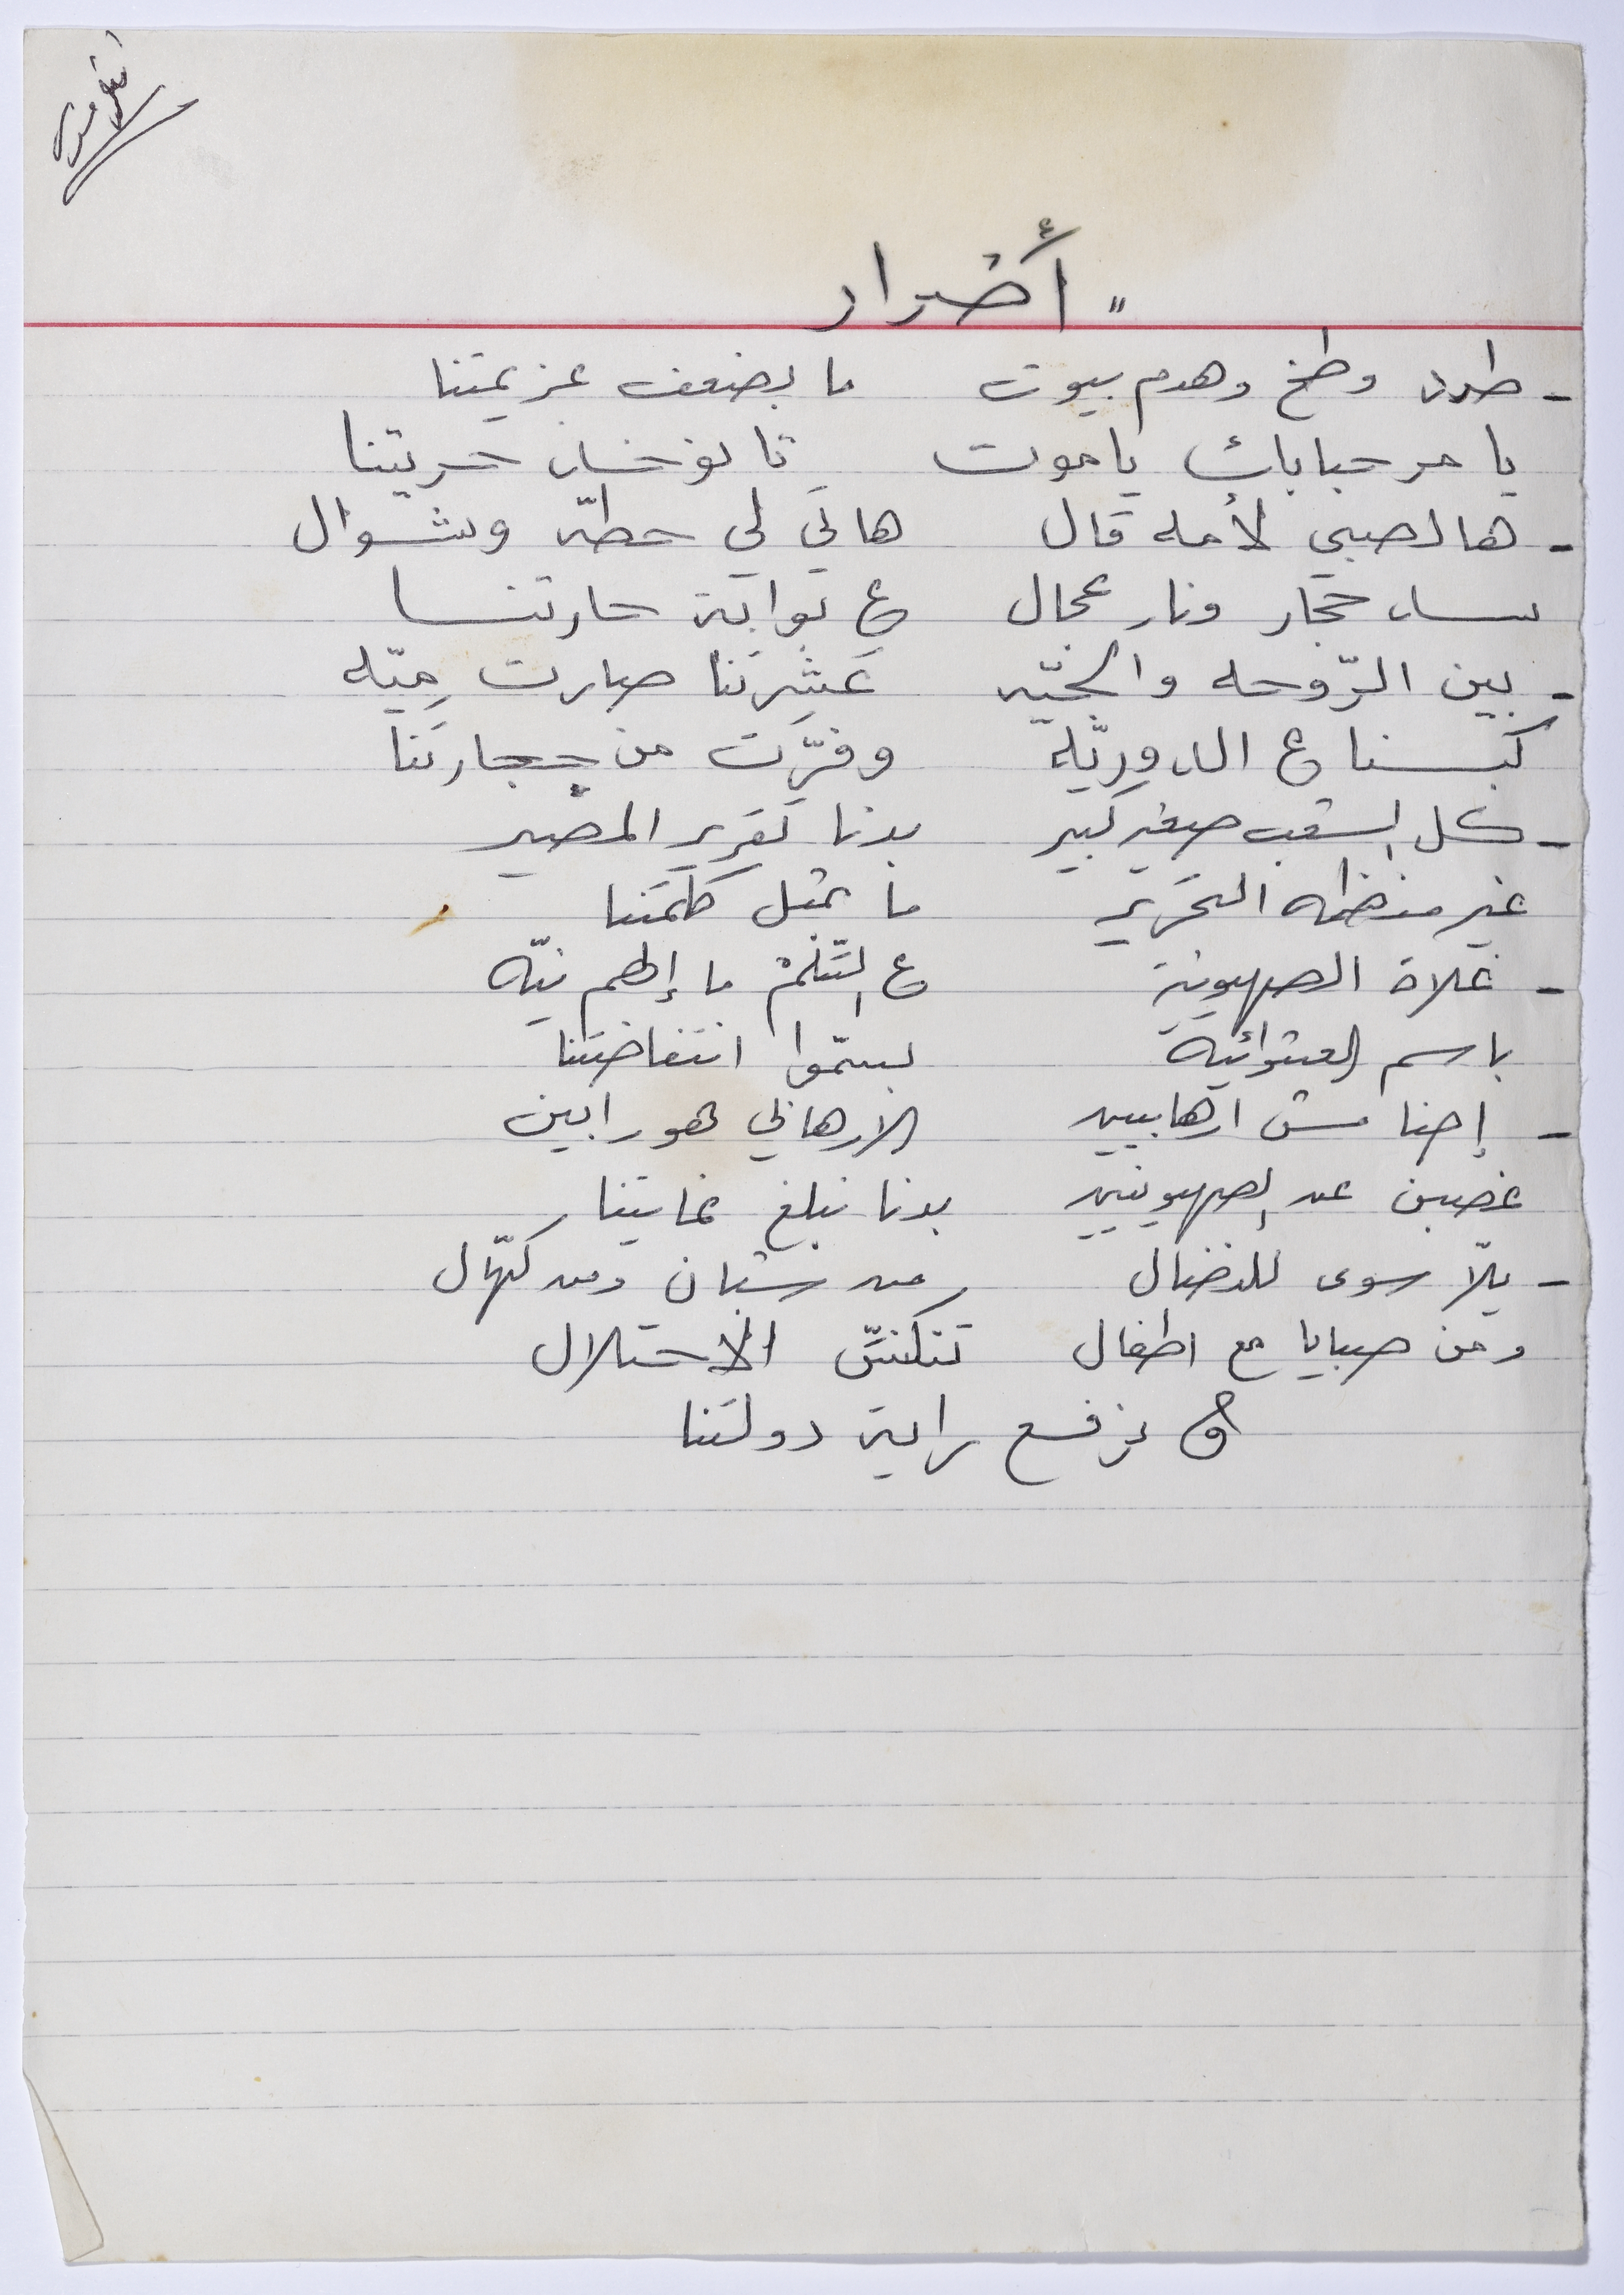 " أضرار
- طرد وطخ وهدم بيوت ما بضعف عزيمتنا
يا مرحبابك يا موت تا نوخذ حريتنا
- هالصبي لأمه قال هاتي لي حطه وشوال
حجار ونار عجال ع بوابة حارتنا
- بين الرّوحه والجيّه عَشِرتنا صارت مِيّه
كبسنا ع الدوريّة وفرّت من حجارتنا
- كل الشعب صغير كبير بدنا تقرير المصير
غير منظمة التحرير ما بمثل كلمتنا
- غلاة الصهيونية ع السّلم ما إلهم نيّه
باسم العشوائية بسمّوا انتفاضتنا
- إحنا مش ارهابيين الارهابي هو رابين
غصبن عن الصهيونيين بدنا نبلغ غايتنا
- يلّا سوى للنضال من شبان ومن كهّال
ومن صبايا مع اطفال تنكنّس الاحتلال
و نرفع راية دولتنا